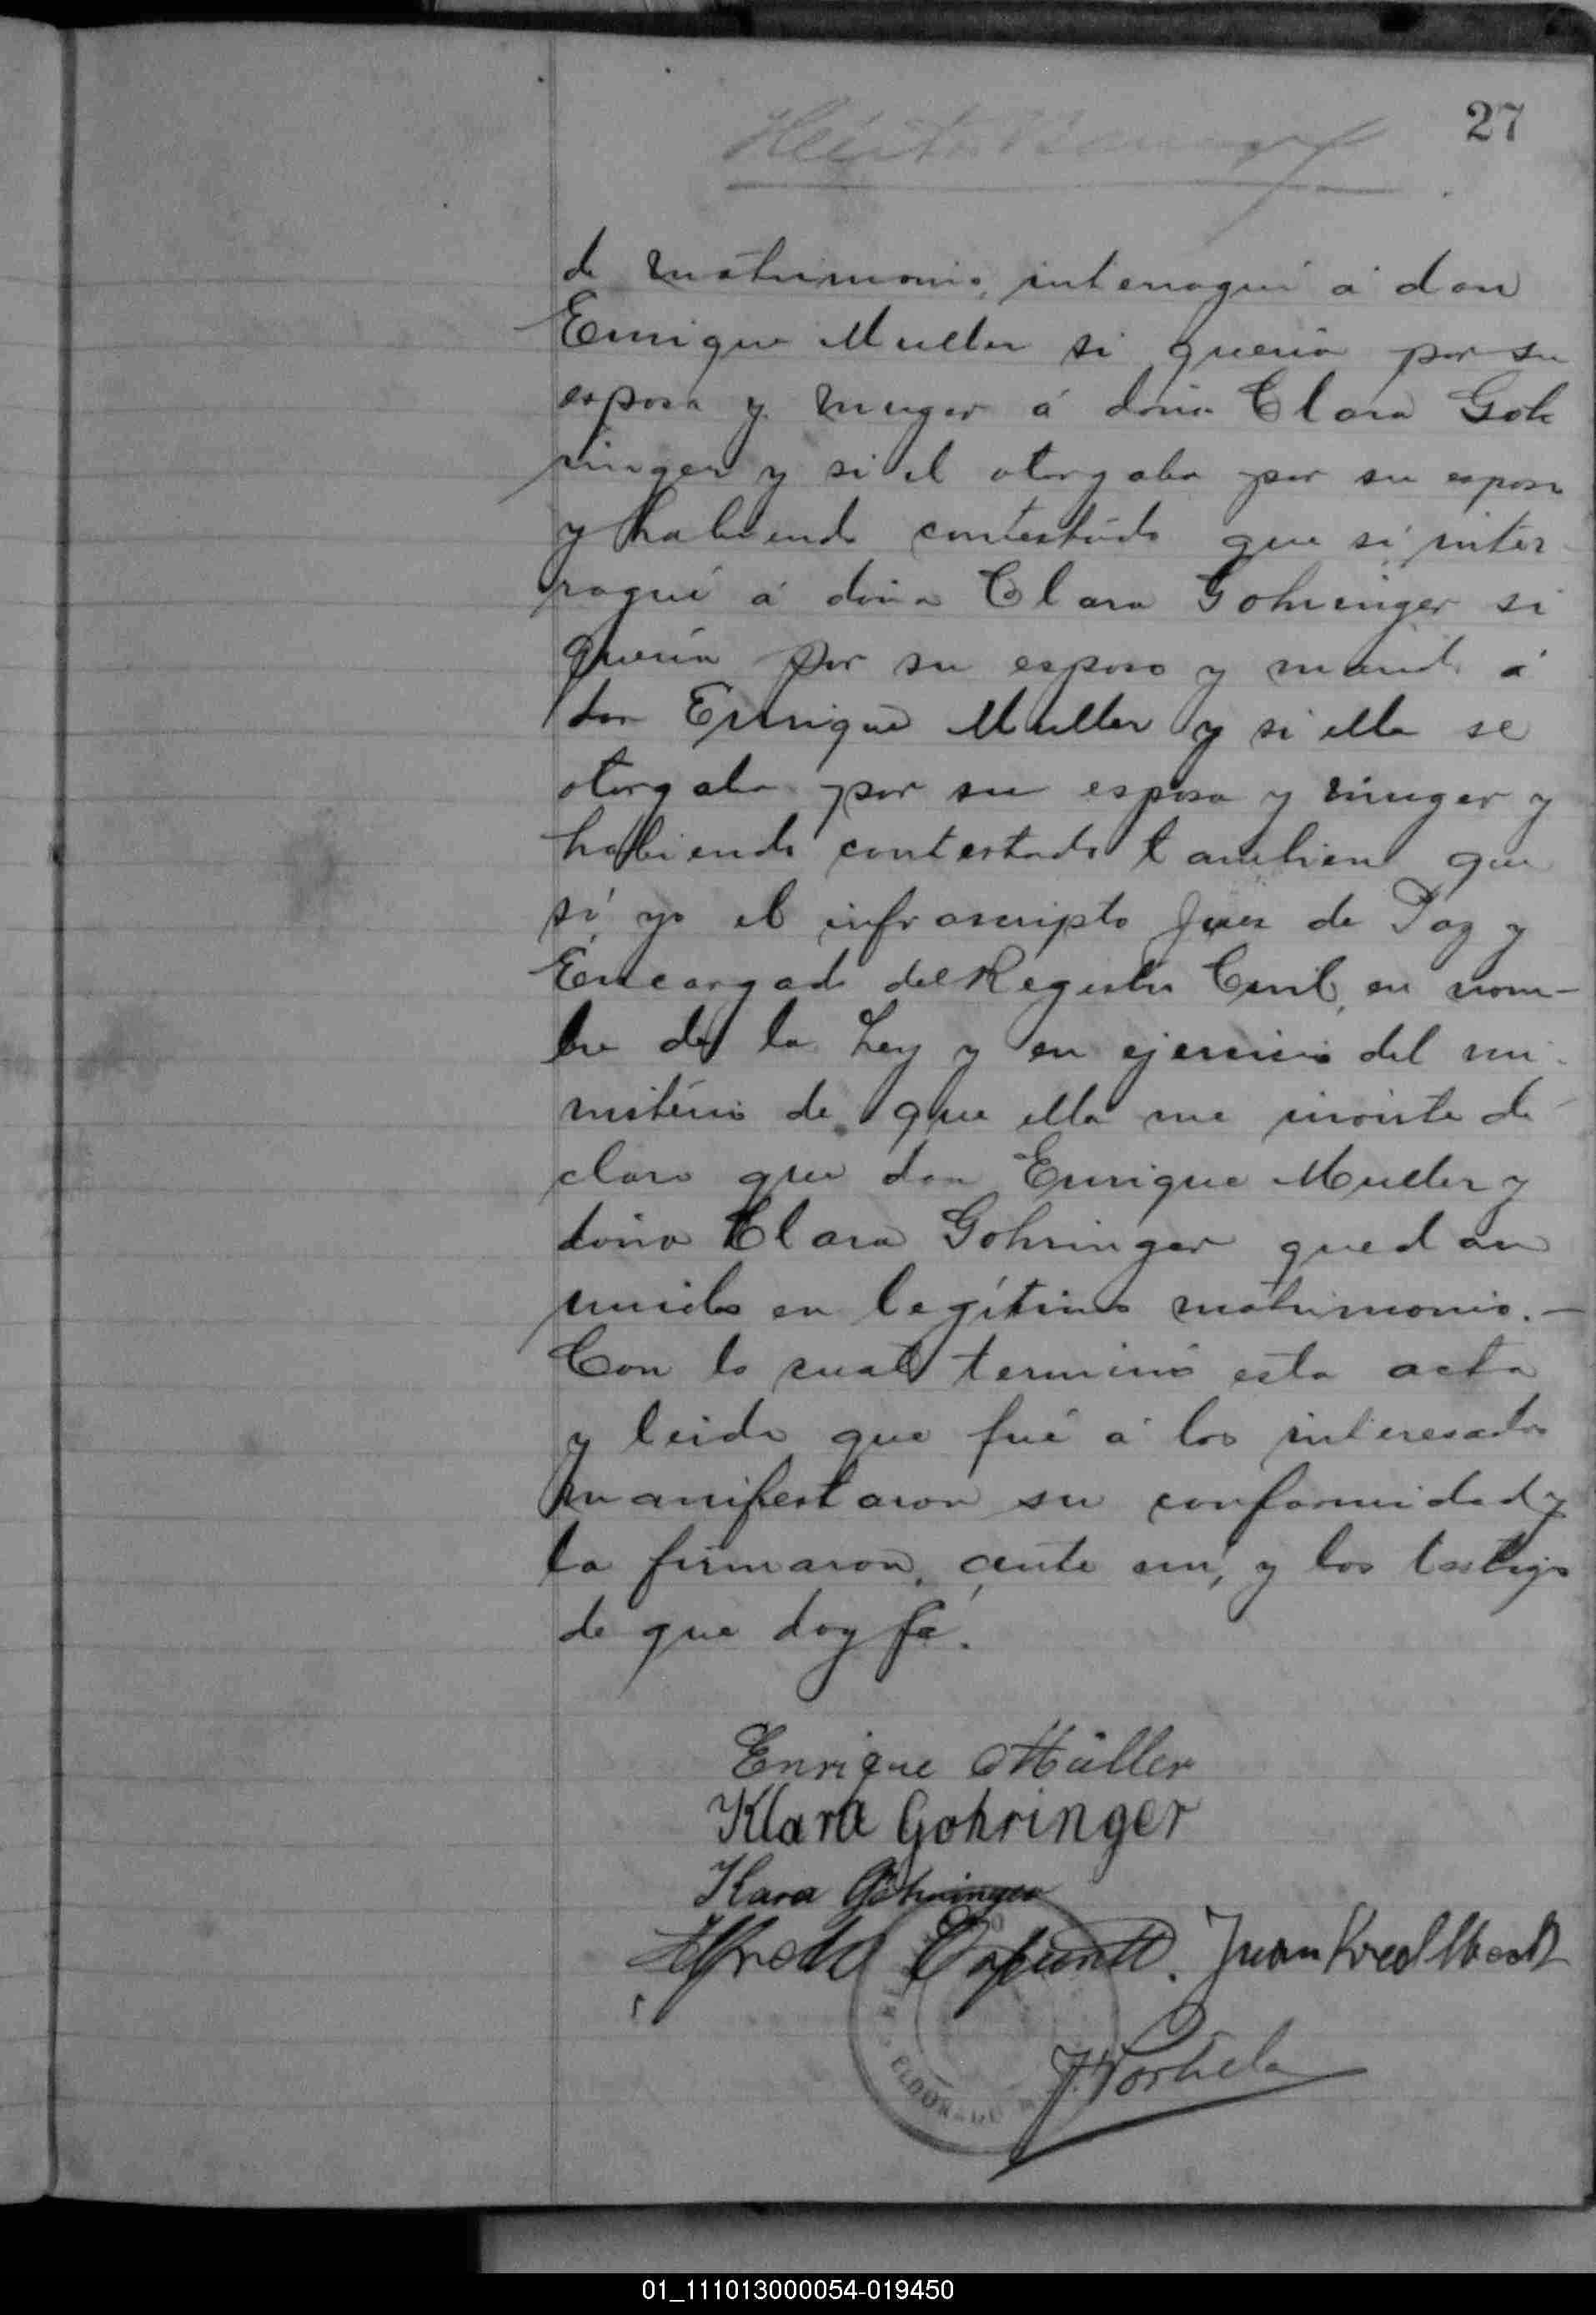 27
de matrimonio, interrogué á don
Enrique Muller si queria por su
esposa y muger á doña Clara Goh
ringer y si él otorgaba por su esposo
y habiendo contestado que sí, inter
rogué á doña Clara Gohringer si
queria por su esposo y marido á
don Enrique Muller y si ella se
otorgaba por su esposa y muger y
habiendo contestado tambien que
sí, yo el infrascripto Juez de Paz y
Encargado del Registro Civil, en nom-
bre de la Ley y en ejercicio del mi-
nisterio de que ella me inviste de
claro que don Enrique Muller y
doña Clara Gohringer quedan
unidos en legítimo matrimonio.—
Con lo cual terminó esta acta
y leida que fué á los interesados
manifestaron su conformidad y
la firmaron, ante mí, y los testigos
de que doy fé.
Enrique Müller
Klara Gohringer
Klara Göhringer
Alfredo Juan
ELDORADO
J. Portela
01_111013000054-019450